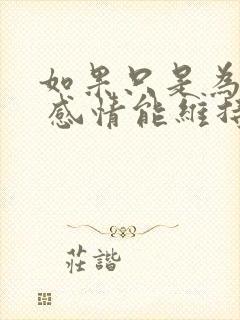 如果只是為
感情能維持
莊諧